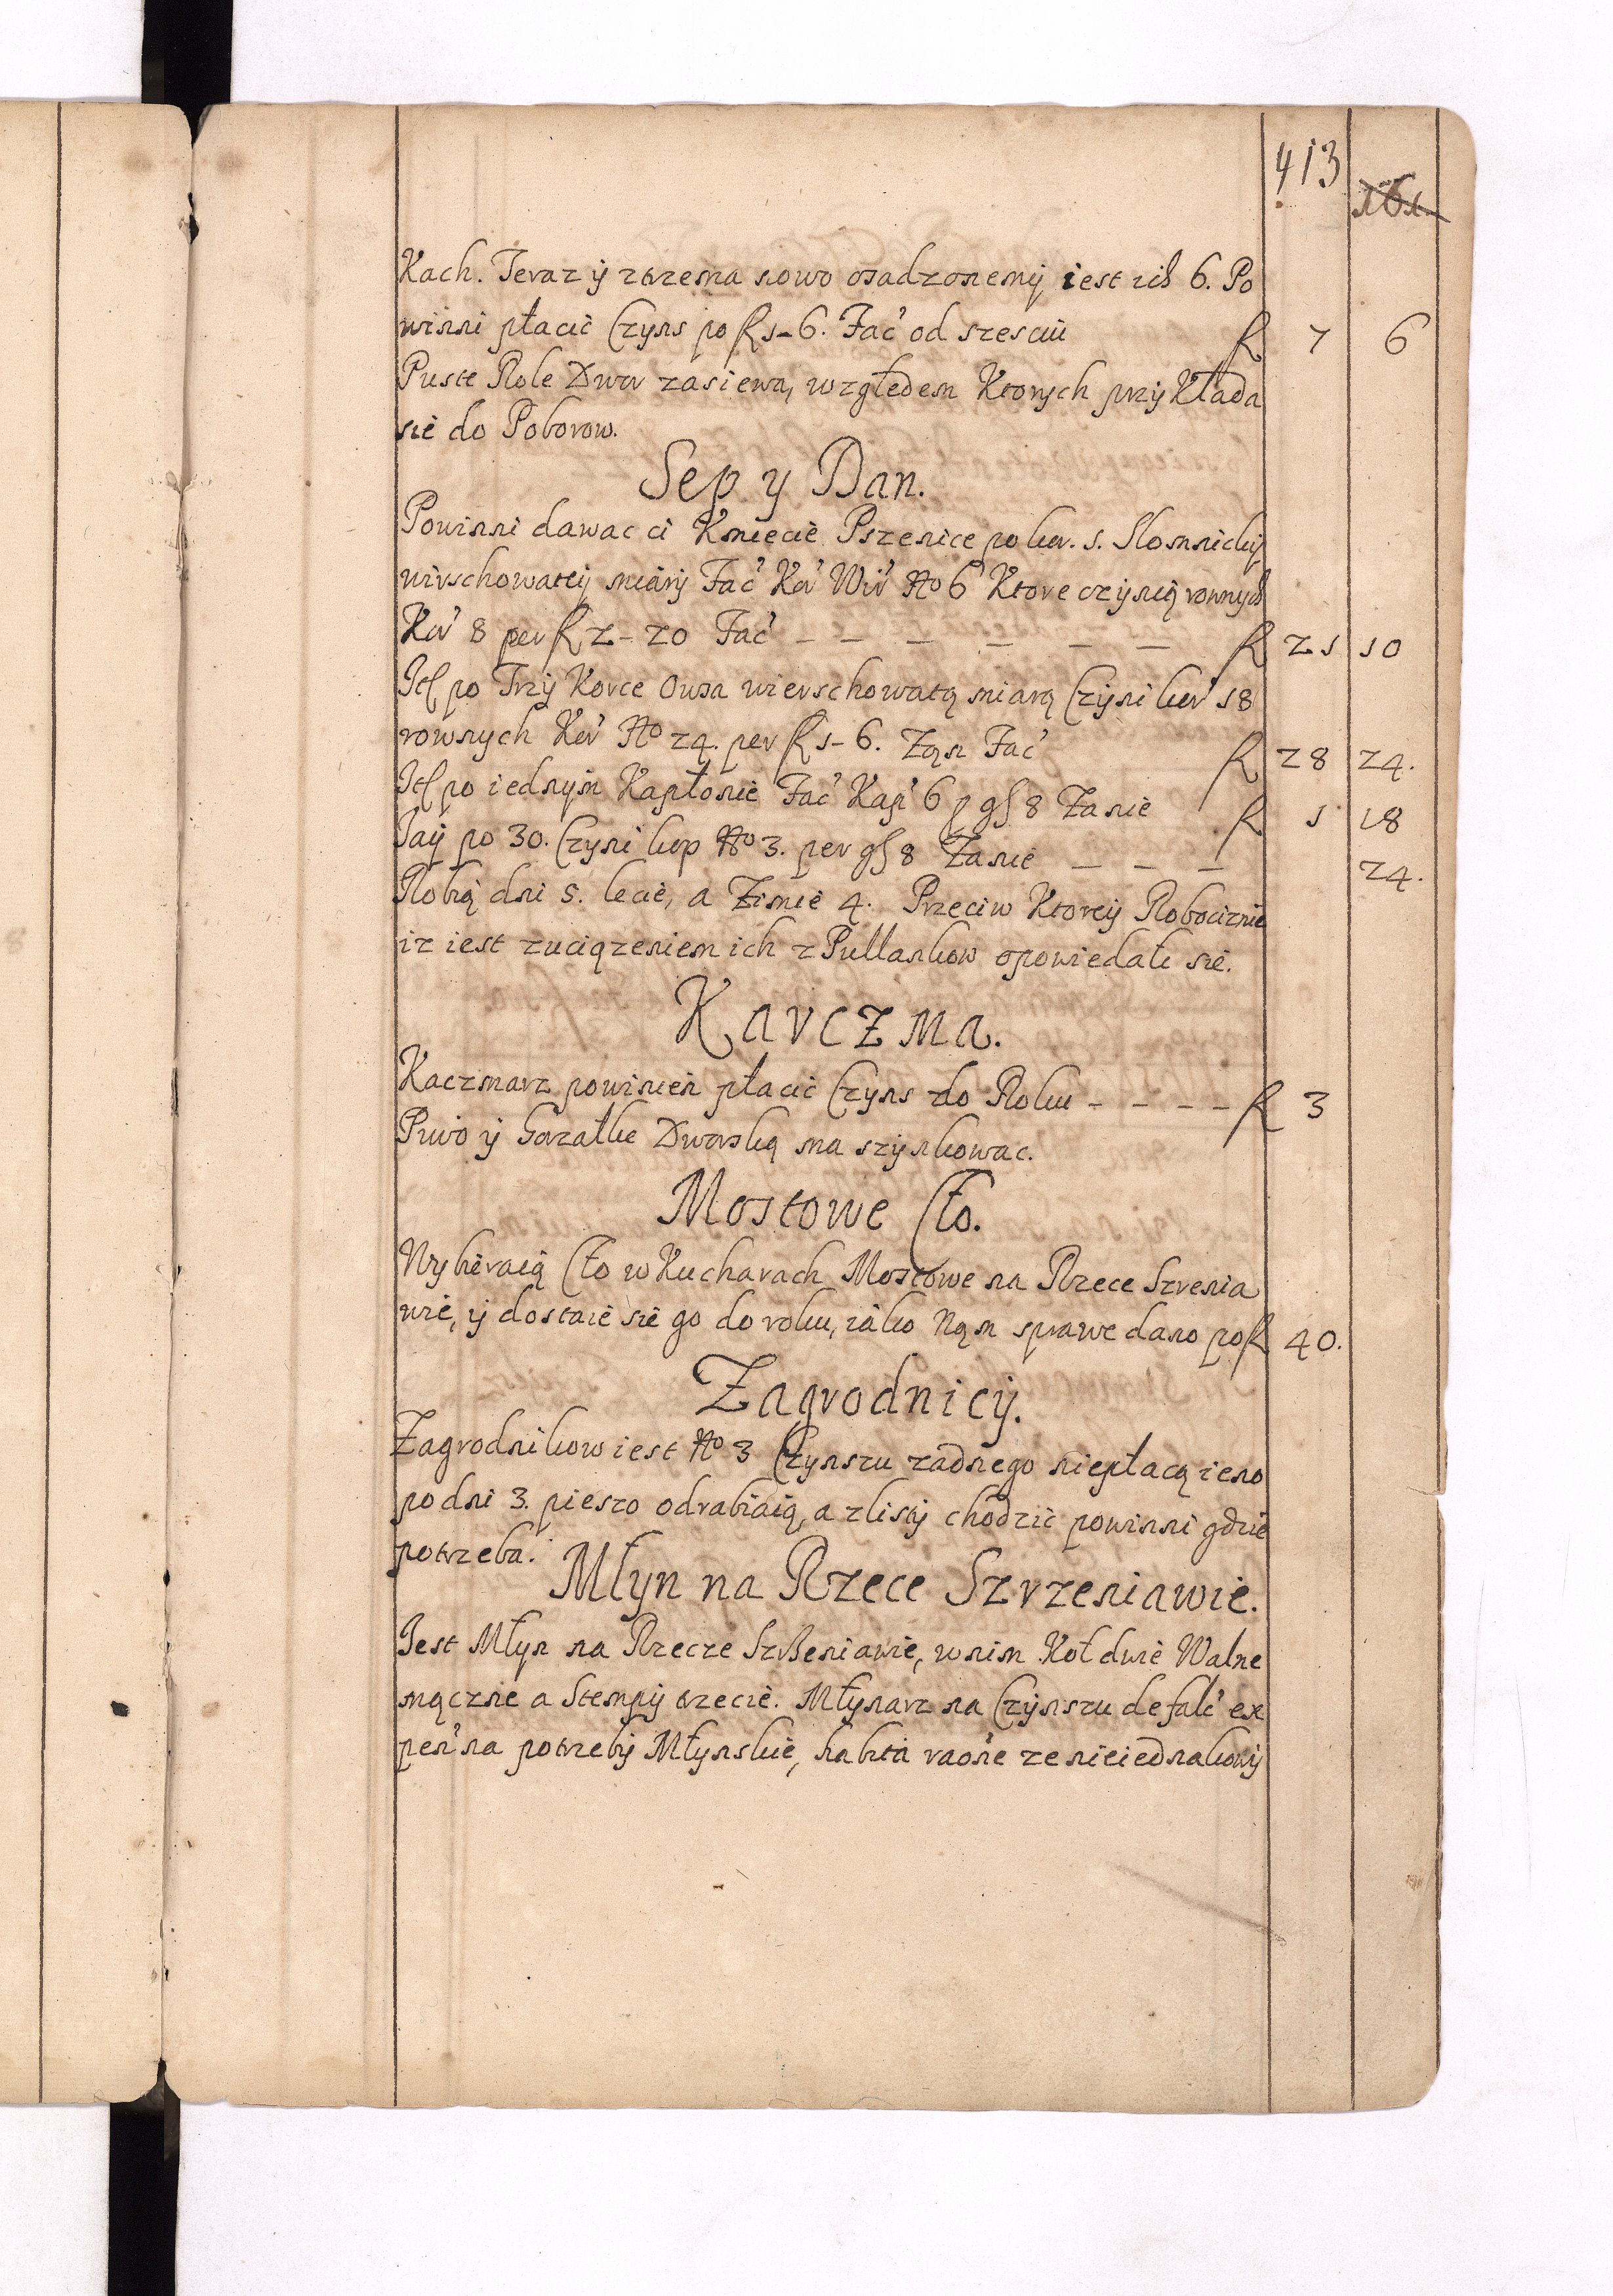 413
161.
Kach. Teraz ÿ ztrzema nowo osadzonemÿ iest ich 6. Po
winni płacic Czÿns po fl 1-6. Fac̃ od szesciu fl 7 6
Puste Role Dwor zasiewa, względem Ktorych przÿkłada
się do Poborow.
Sep y Dan.
Powinni dawac ci Kmiecie Pszenice po kor. 1. Slomnickÿ
wirschowateÿ miarÿ Fac̃ Kor̃ Wir̃ No 6 Ktore czÿnią rownych
Kor̃ 8 per fl 2-20 Fac̃ - - - - - fl 21 10
It̃ po Trzÿ Korce Owsa wierschowatą miarą Czÿni kor̃ 18
rownych Kor̃ No 24. per fl 1-6. Ząn Fac̃ fl 28 24.
It̃ po iednÿm Kapłonie Fac̃ Kap̃ 6 p gß 8 Zanie fl 1 18
Jaÿ po 30. Czÿni kop No 3. per gß 8 Zanie - - - 24.
Robią dni 5. lecie, a Zimie 4. Przeciw Ktoreÿ Robociznie
iz iest zuciązeniem ich z Pułlankow opowiedali się.
Karczma.
Kaczmarz powinien płacic Czÿns do Roku - - - - fl 3
Piwo ÿ Gorzałkę Dworską ma szÿnkowac.
Mostowe Cło.
Wybieraią Cło w Kucharach Mostowe na Rzece Szrenia
wie, ÿ dostaie się go do roku, iako Nąm sprawę dano po fl 40.
Zagrodnicÿ.
Zagrodnikow iest No 3 Czynszu zadnego niepłacą ieno
po dni 3. pieszo odrabiaią, a zlistÿ chodzic powinni gdzie
potrzeba.
Młyn na Rzece Szrzeniawie.
Jest Młyn na Rzecze Szrzeniawie, wnim Koł dwie Walne
mączne a Stempÿ trzecie. Młynarz na Czÿnszu defalc̃ ex
pen̄ na potrzebÿ Młynskie, habita rao͠ne ze nieiednakowÿ